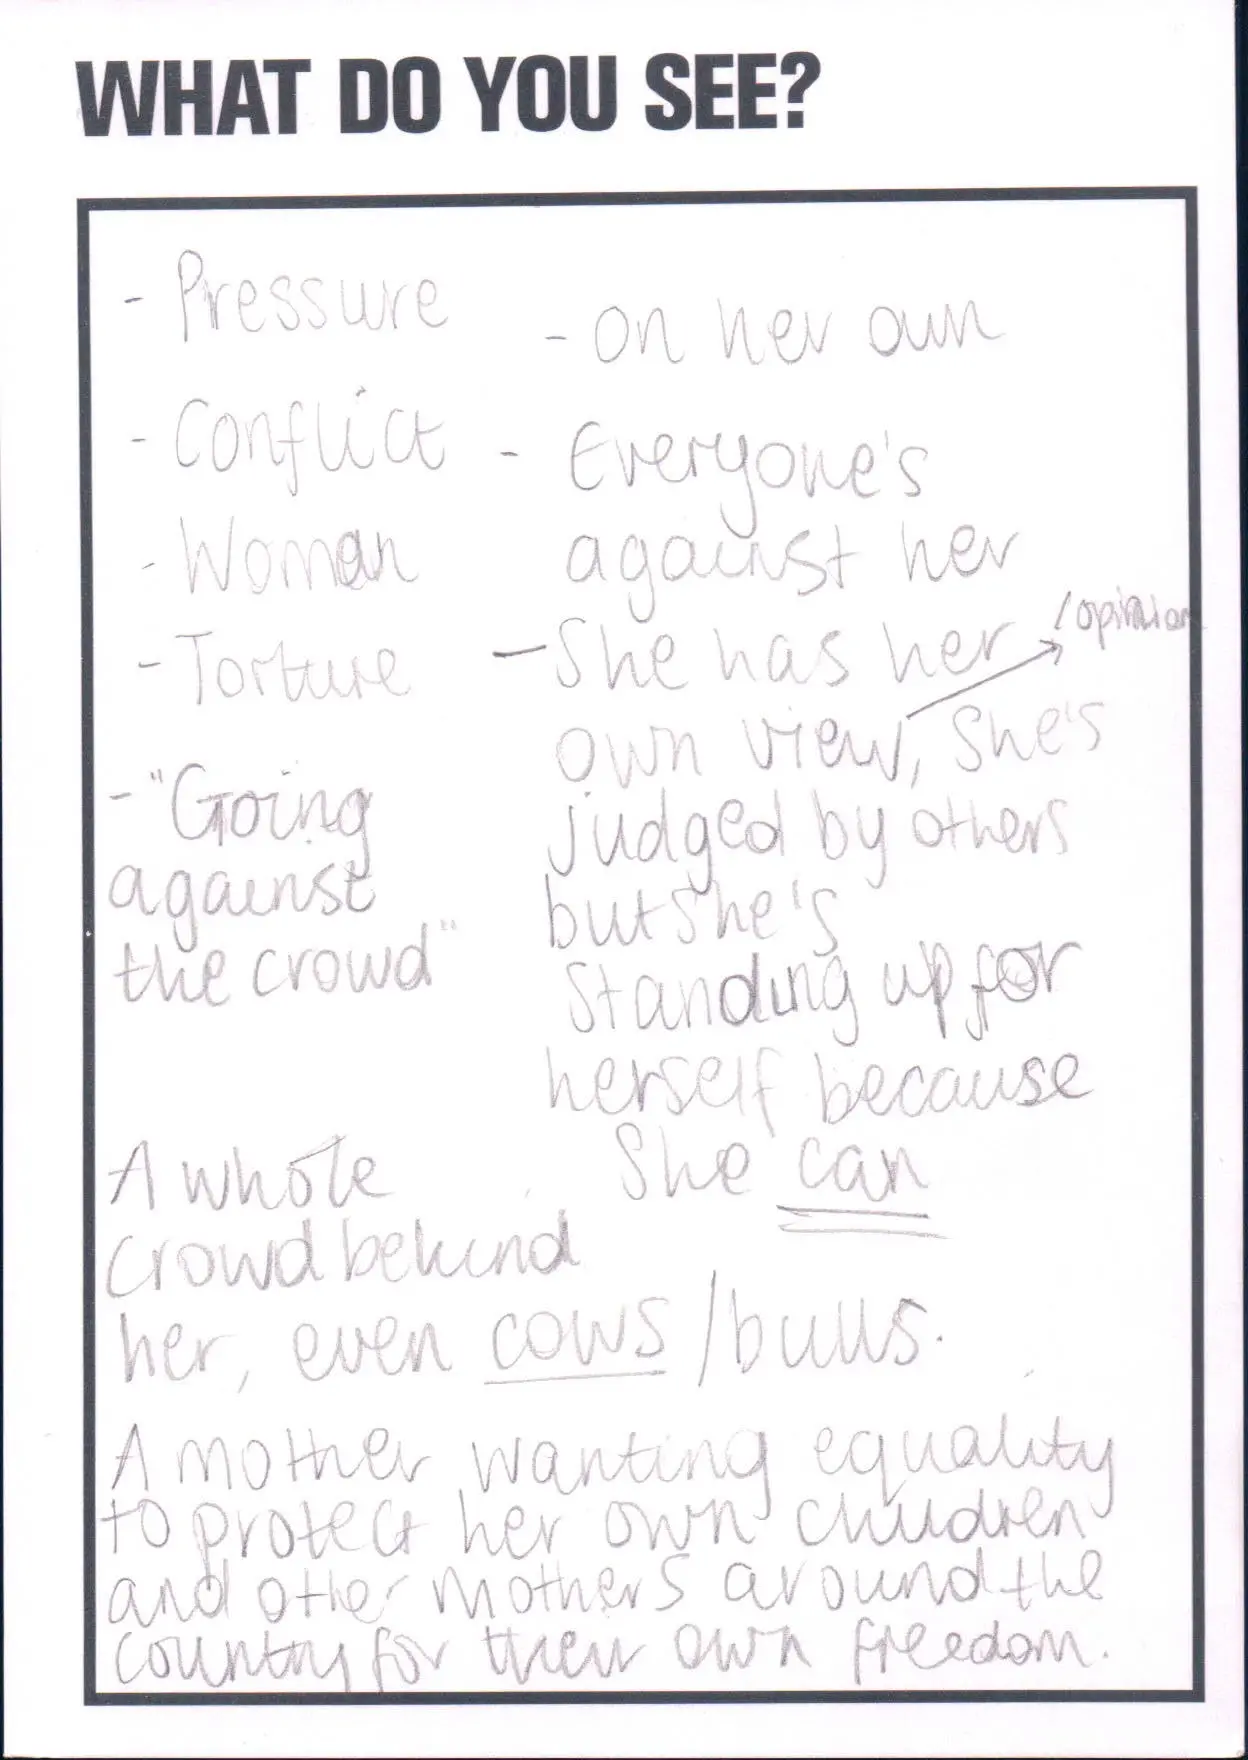 WHAT DO YOU SEE?
- Pressure
- Conflict
- Woman
- Torture
- "Going
against
the crowd"
- on her own
- Everyone's
against her
- She has her
/opinion
own view, she's
judged by others
but she's
standing up for
herself because
She can
A whole
crowd behind
her, even cows /bulls.
A mother wanting equality
to protect her own children
and other mothers around the
country for their own freedom.